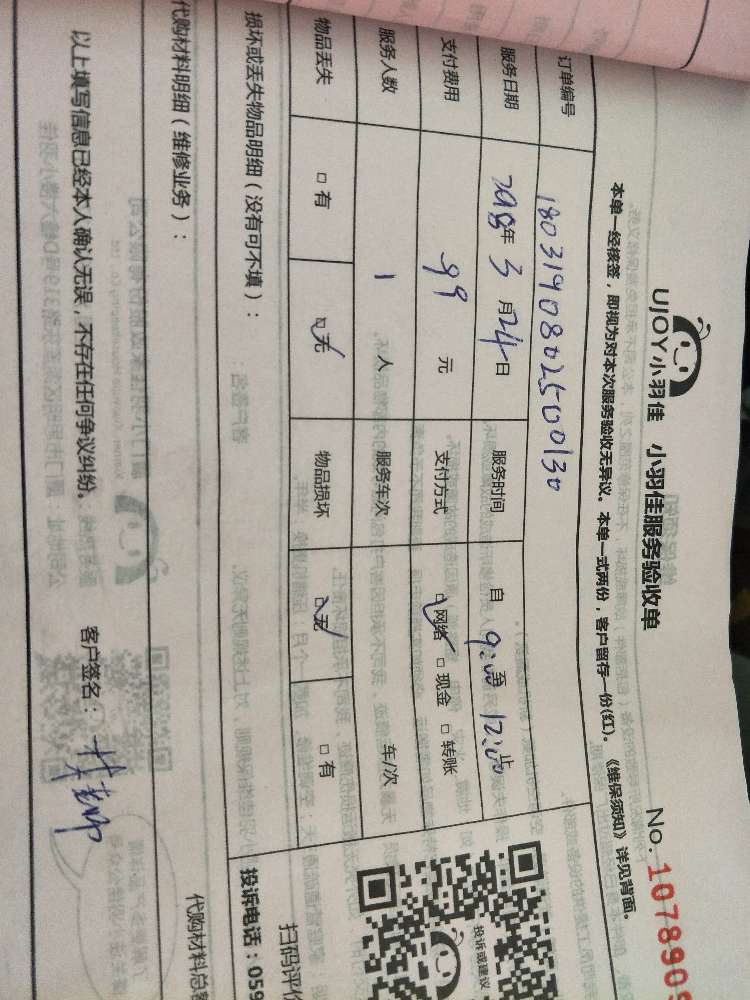 UJOY小羽佳 小羽佳服务验收单 No. 1078909
本单一经核签，即视为对本次服务验收无异议。本单一式两份，客户留存一份(红)。《维保须知》详见背面。
订单编号 180319080250130
服务日期 2018年 3 月 24 日 服务时间 自 9:00 至 12:00 止
支付费用 99 元 支付方式 ☑网络 □现金 □转账
服务人数 1 人 服务车次 车/次
物品丢失 □有 ☑无 物品损坏 ☑无 □有
投诉或建议
扫码评价
损坏或丢失物品明细（没有可不填）： 投诉电话：059
代购材料明细（维修业务）： 代购材料总
以上填写信息已经本人确认无误，不存在任何争议纠纷。 客户签名：